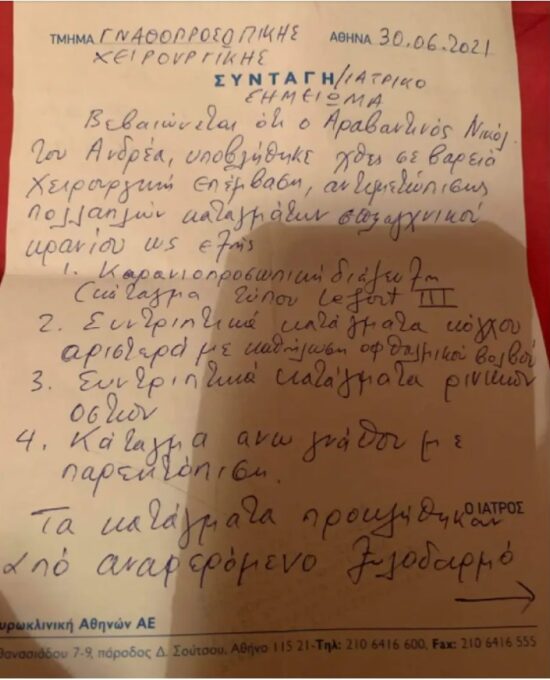 ΤΜΗΜΑ ΓΝΑΘΟΠΡΟΣΩΠΙΚΗΣ ΑΘΗΝΑ 30.06.2021
ΧΕΙΡΟΥΡΓΙΚΗΣ
ΣΥΝΤΑΓΗ/ΙΑΤΡΙΚΟ
ΣΗΜΕΙΩΜΑ
Βεβαιώνεται ότι ο Αραβαντινός Νικόλ.
του Ανδρέα, υποβλήθηκε χθες σε βαρειά
χειρουργική επέμβαση, αντιμετώπισης
πολλαπλών καταγμάτων σπλαγχνικού
κρανίου ως εξής
1. Κρανιοπροσωπική διάζευξη
(κάταγμα τύπου Lefort III
2. Συντριπτικά κατάγματα κόγχου
αριστερά με καθήλωση οφθαλμικού βολβού
3. Συντριπτικά κατάγματα ρινικών
οστών
4. Κάταγμα άνω γνάθου με
παρεκτόπιση.
Ο ΙΑΤΡΟΣ
Τα κατάγματα προκλήθηκαν
από αναφερόμενο ξυλοδαρμό
υρωκλινική Αθηνών ΑΕ
θανασιάδου 7-9, πάροδος Δ. Σούτσου, Αθήνα 115 21-Τηλ: 210 6416 600, Fax: 210 6416 555